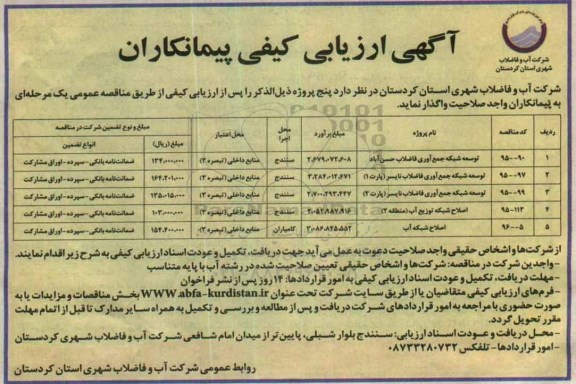 شرکت آب و فاضلاب
شهری استان کردستان
آگهی ارزیابی کیفی پیمانکاران
شرکت آب و فاضلاب شهری استان کردستان در نظر دارد پنج پروژه ذیل‌الذکر را پس از ارزیابی کیفی از طریق مناقصه عمومی یک مرحله‌ای
به پیمانکاران واجد صلاحیت واگذار نماید.
ردیف کد مناقصه نام پروژه مبلغ برآورد محل اجرا محل اعتبار مبلغ و نوع تضمین شرکت در مناقصه
مبلغ (ریال) انواع تضمین
۱ ۹۵-۰۹۰ توسعه شبکه جمع‌آوری فاضلاب حسن‌آباد ۲،۶۷۹،۰۷۲،۶۰۸ سنندج منابع داخلی (تبصره ۳) ۱۳۴،۰۰۰،۰۰۰ ضمانت‌نامه بانکی-سپرده-اوراق مشارکت
۲ ۹۵-۰۹۷ توسعه شبکه جمع‌آوری فاضلاب نایسر (پارت ۱) ۳،۲۸۴،۰۱۲،۶۷۱ سنندج منابع داخلی (تبصره ۳) ۱۶۴،۲۰۱،۰۰۰ ضمانت‌نامه بانکی-سپرده-اوراق مشارکت
۳ ۹۵-۰۹۹ توسعه شبکه جمع‌آوری فاضلاب نایسر (پارت ۲) ۲،۷۰۰،۲۹۳،۴۴۷ سنندج منابع داخلی (تبصره ۳) ۱۳۵،۰۱۵،۰۰۰ ضمانت‌نامه بانکی-سپرده-اوراق مشارکت
۴ ۹۵-۱۱۳ اصلاح شبکه توزیع آب (منطقه ۲) ۲،۰۵۲،۹۸۷،۸۱۶ سنندج منابع داخلی (تبصره ۳) ۱۰۳،۰۰۰،۰۰۰ ضمانت‌نامه بانکی-سپرده-اوراق مشارکت
۵ ۹۶-۰۰۵ اصلاح شبکه آب ۳،۰۸۶،۸۴۵،۵۵۲ کامیاران منابع داخلی (تبصره ۳) ۱۵۴،۴۰۰،۰۰۰ ضمانت‌نامه بانکی-سپرده-اوراق مشارکت
از شرکت‌ها و اشخاص حقیقی واجد صلاحیت دعوت به عمل می آید جهت دریافت، تکمیل و عودت اسناد ارزیابی کیفی به شرح زیر اقدام نمایند.
-واجدین شرکت در مناقصه: شرکت‌ها و اشخاص حقیقی تعیین صلاحیت شده در رشته آب با پایه متناسب
-مهلت دریافت، تکمیل و عودت اسناد ارزیابی کیفی به امور قراردادها: ۱۴ روز پس از نشر فراخوان
- فرم‌های ارزیابی کیفی متقاضیان یا از طریق سایت شرکت تحت عنوان WWW.abfa-kurdistan.ir بخش مناقصات و مزایدات یا به
صورت حضوری با مراجعه به امور قراردادهای شرکت دریافت و پس از مطالعه و بررسی و تکمیل به همراه سایر مدارک تا قبل از اتمام مهلت
مقرر تحویل گردد.
- محل دریافت و عودت اسناد ارزیابی: سنندج بلوار شبلی، پایین‌تر از میدان امام شافعی شرکت آب و فاضلاب شهری کردستان
-امور قراردادها- تلفکس ۰۸۷۳۳۲۸۰۷۳۲
روابط عمومی شرکت آب و فاضلاب شهری استان کردستان